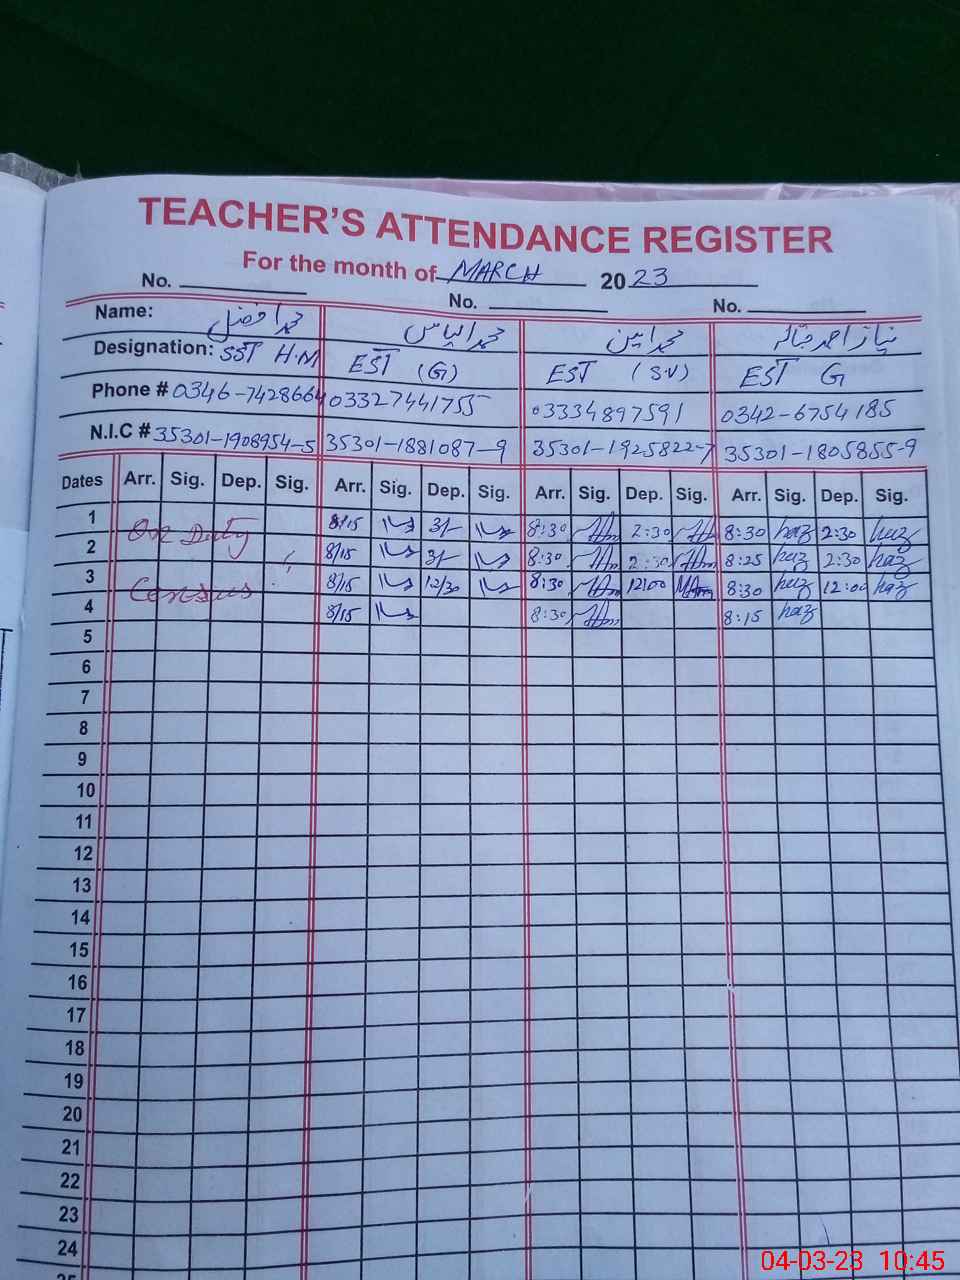 TEACHER'S ATTENDANCE REGISTER
For the month of MARCH 2023
No. No. No.
Name: محمد افضل محمد الیاس محمد امین نیاز احمد
Designation: SST H.M EST (G) EST (S.V) EST G
Phone # 0346-7428664 03327441755 03334897591 0342-6754185
N.I.C # 35301-1908954-5 35301-1881087-9 35301-1925822-7 35301-1805855-9
Dates Arr. Sig. Dep. Sig. Arr. Sig. Dep. Sig. Arr. Sig. Dep. Sig. Arr. Sig. Dep. Sig.
1 On Duty 8/15 3/- 8:30 2:30 8:30 haz 2:30 haz
2 8/15 3/- 8:30 2:30 8:25 haz 2:30 haz
3 Census 8/15 12/30 8:30 12:00 8:30 haz 12:00 haz
4 8/15 8:30 8:15 haz
5
6
7
8
9
10
11
12
13
14
15
16
17
18
19
20
21
22
23
24
25
04-03-23 10:45